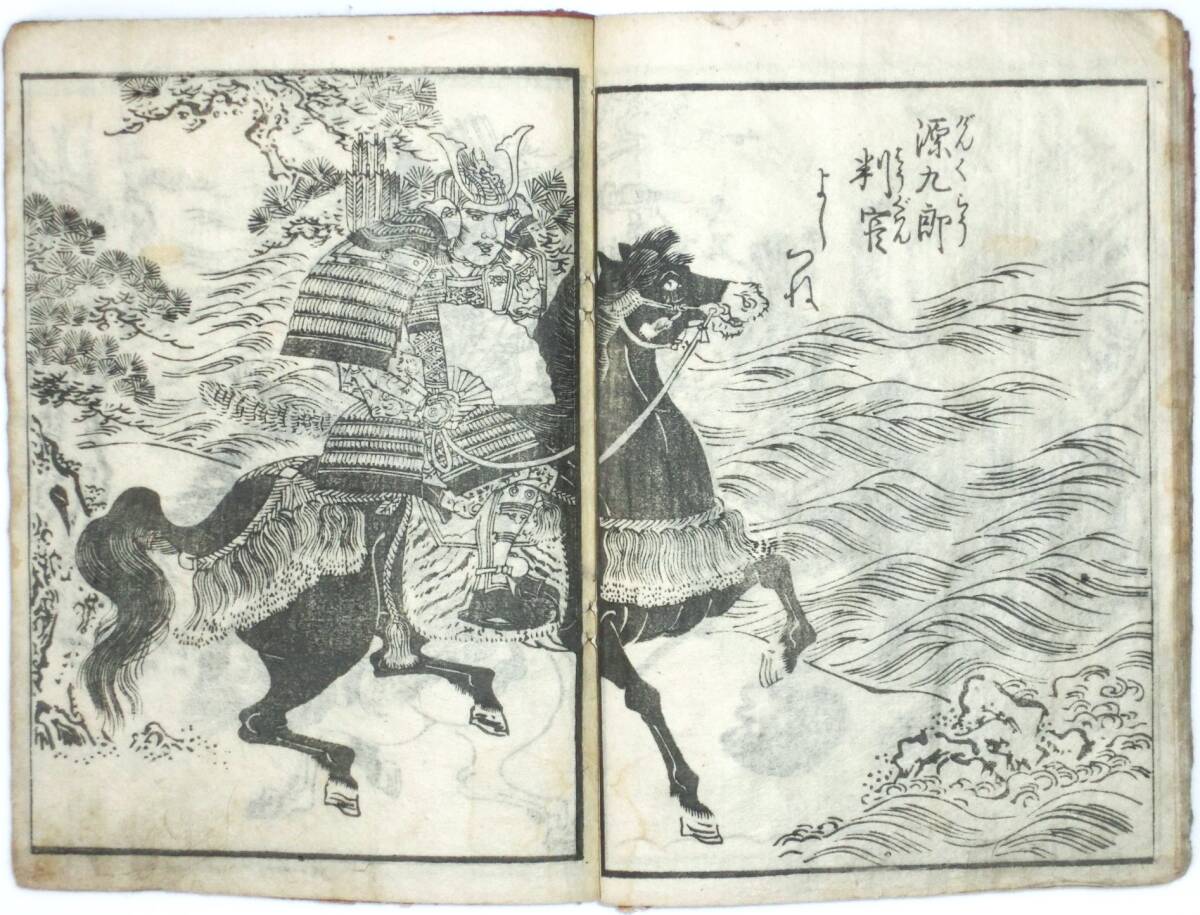 源九郎
げんくらう
判官
はうぐん
よしつね